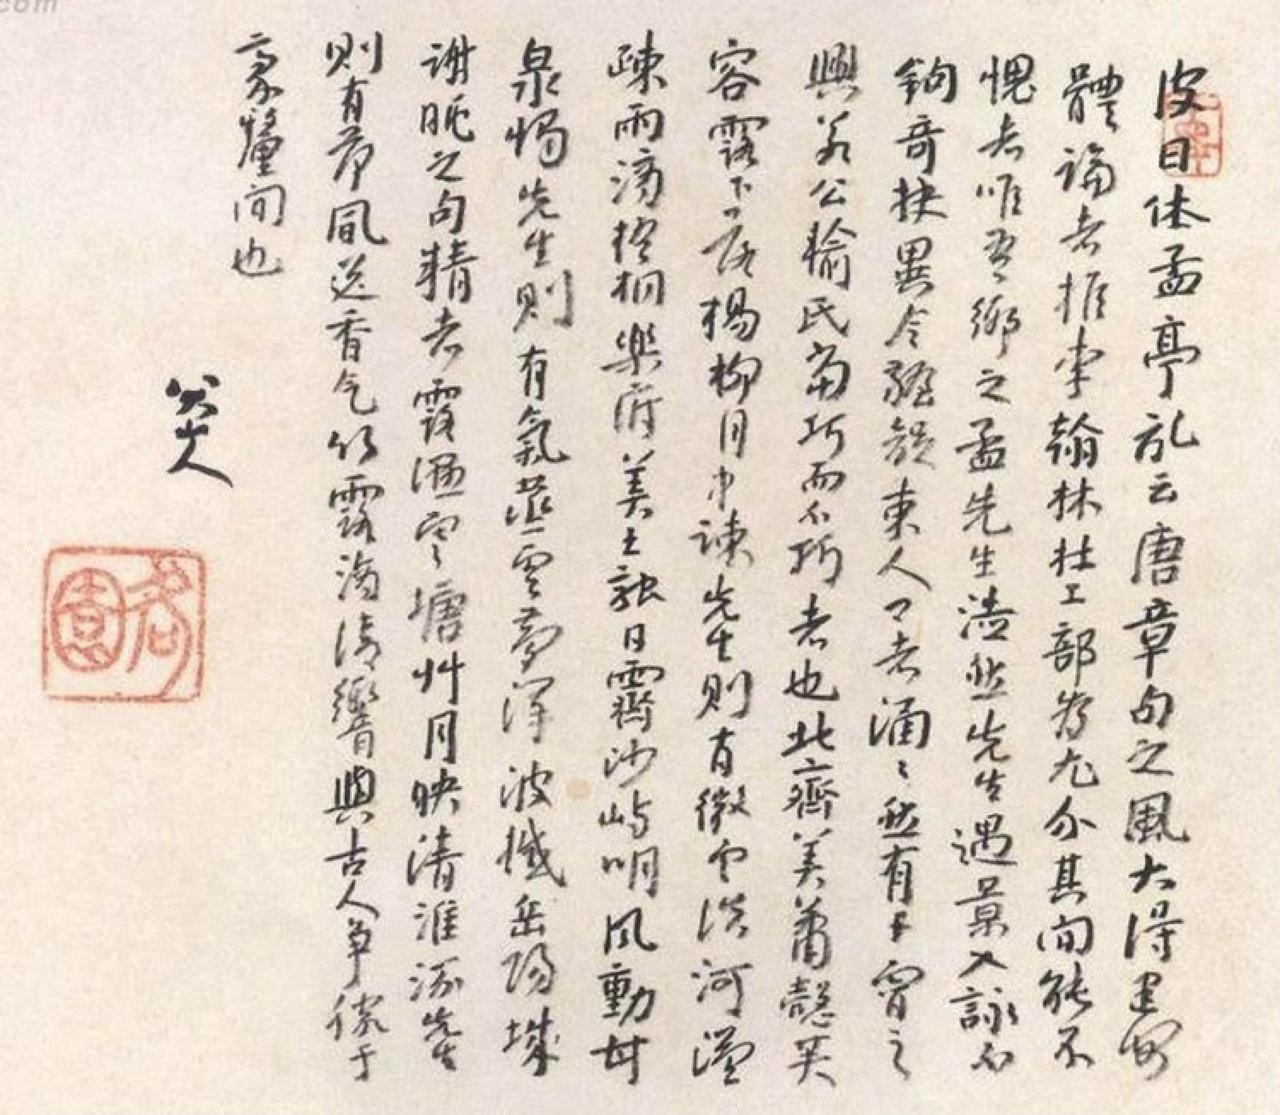 皮日休孟亭記云唐章句之風大得建安
體論者推李翰林杜工部為尤介其間能不
愧者唯吾鄉之孟先生浩然先生遇景入詠不
鉤奇抉異令齷齪束人口者涌々然有干霄之
興若公輸氏當巧而不巧者也北齊美蕭愨芙
容露下落楊柳月中疎先生則有微雲淡河漢
疎雨滴梧桐樂府美王融日霽沙嶼明風動甘
泉濁先生則有氣蒸雲夢澤波撼岳陽城
謝朓之句精者露濕寒塘艸月映清淮流先生
則有荷風送香气竹露滴清響此與古人爭傢于
豪釐間也
八大人
.com